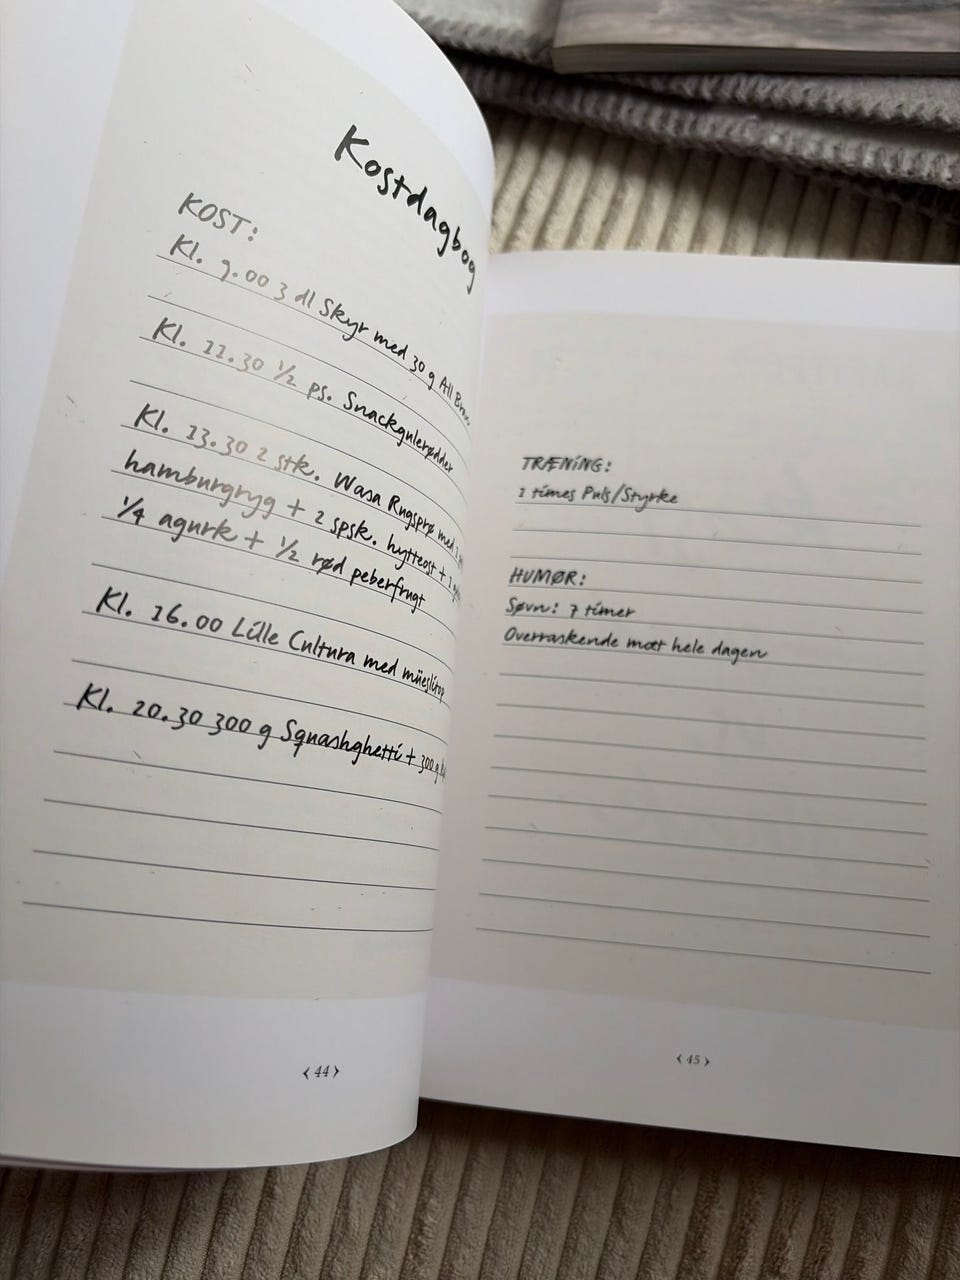 Kostdagbog
KOST:
Kl. 9.00 3 dl Skyr med 30 g All Bran
Kl. 11.30 ½ ps. Snackgulerødder
Kl. 13.30 2 stk. Wasa Rugsprø med
hamburgryg + 2 spsk. hytteost + 1
¼ agurk + ½ rød peberfrugt
Kl. 16.00 Lille Cultura med müeslitop
Kl. 20.30 300 g Squashghetti + 300 g
‹ 44 ›
TRÆNING:
1 times Puls/Styrke
HUMØR:
Søvn: 7 timer
Overraskende mæt hele dagen
‹ 45 ›